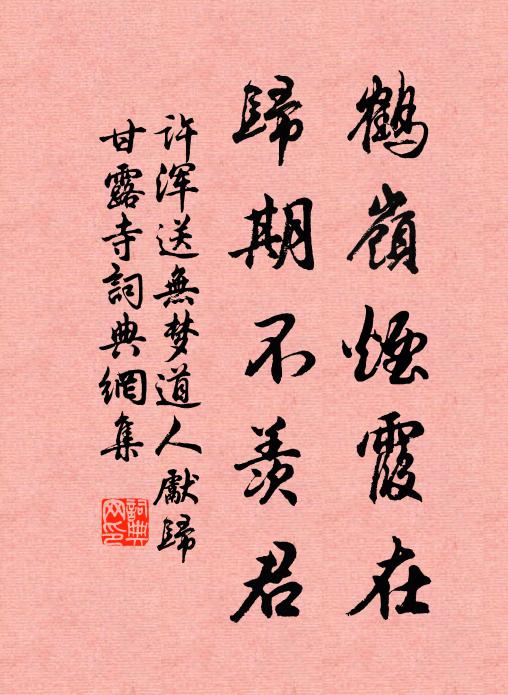 鶴嶺煙霞在
歸期不羨君
許渾送無梦道人獻歸
甘露寺詞典網集
詞典网印